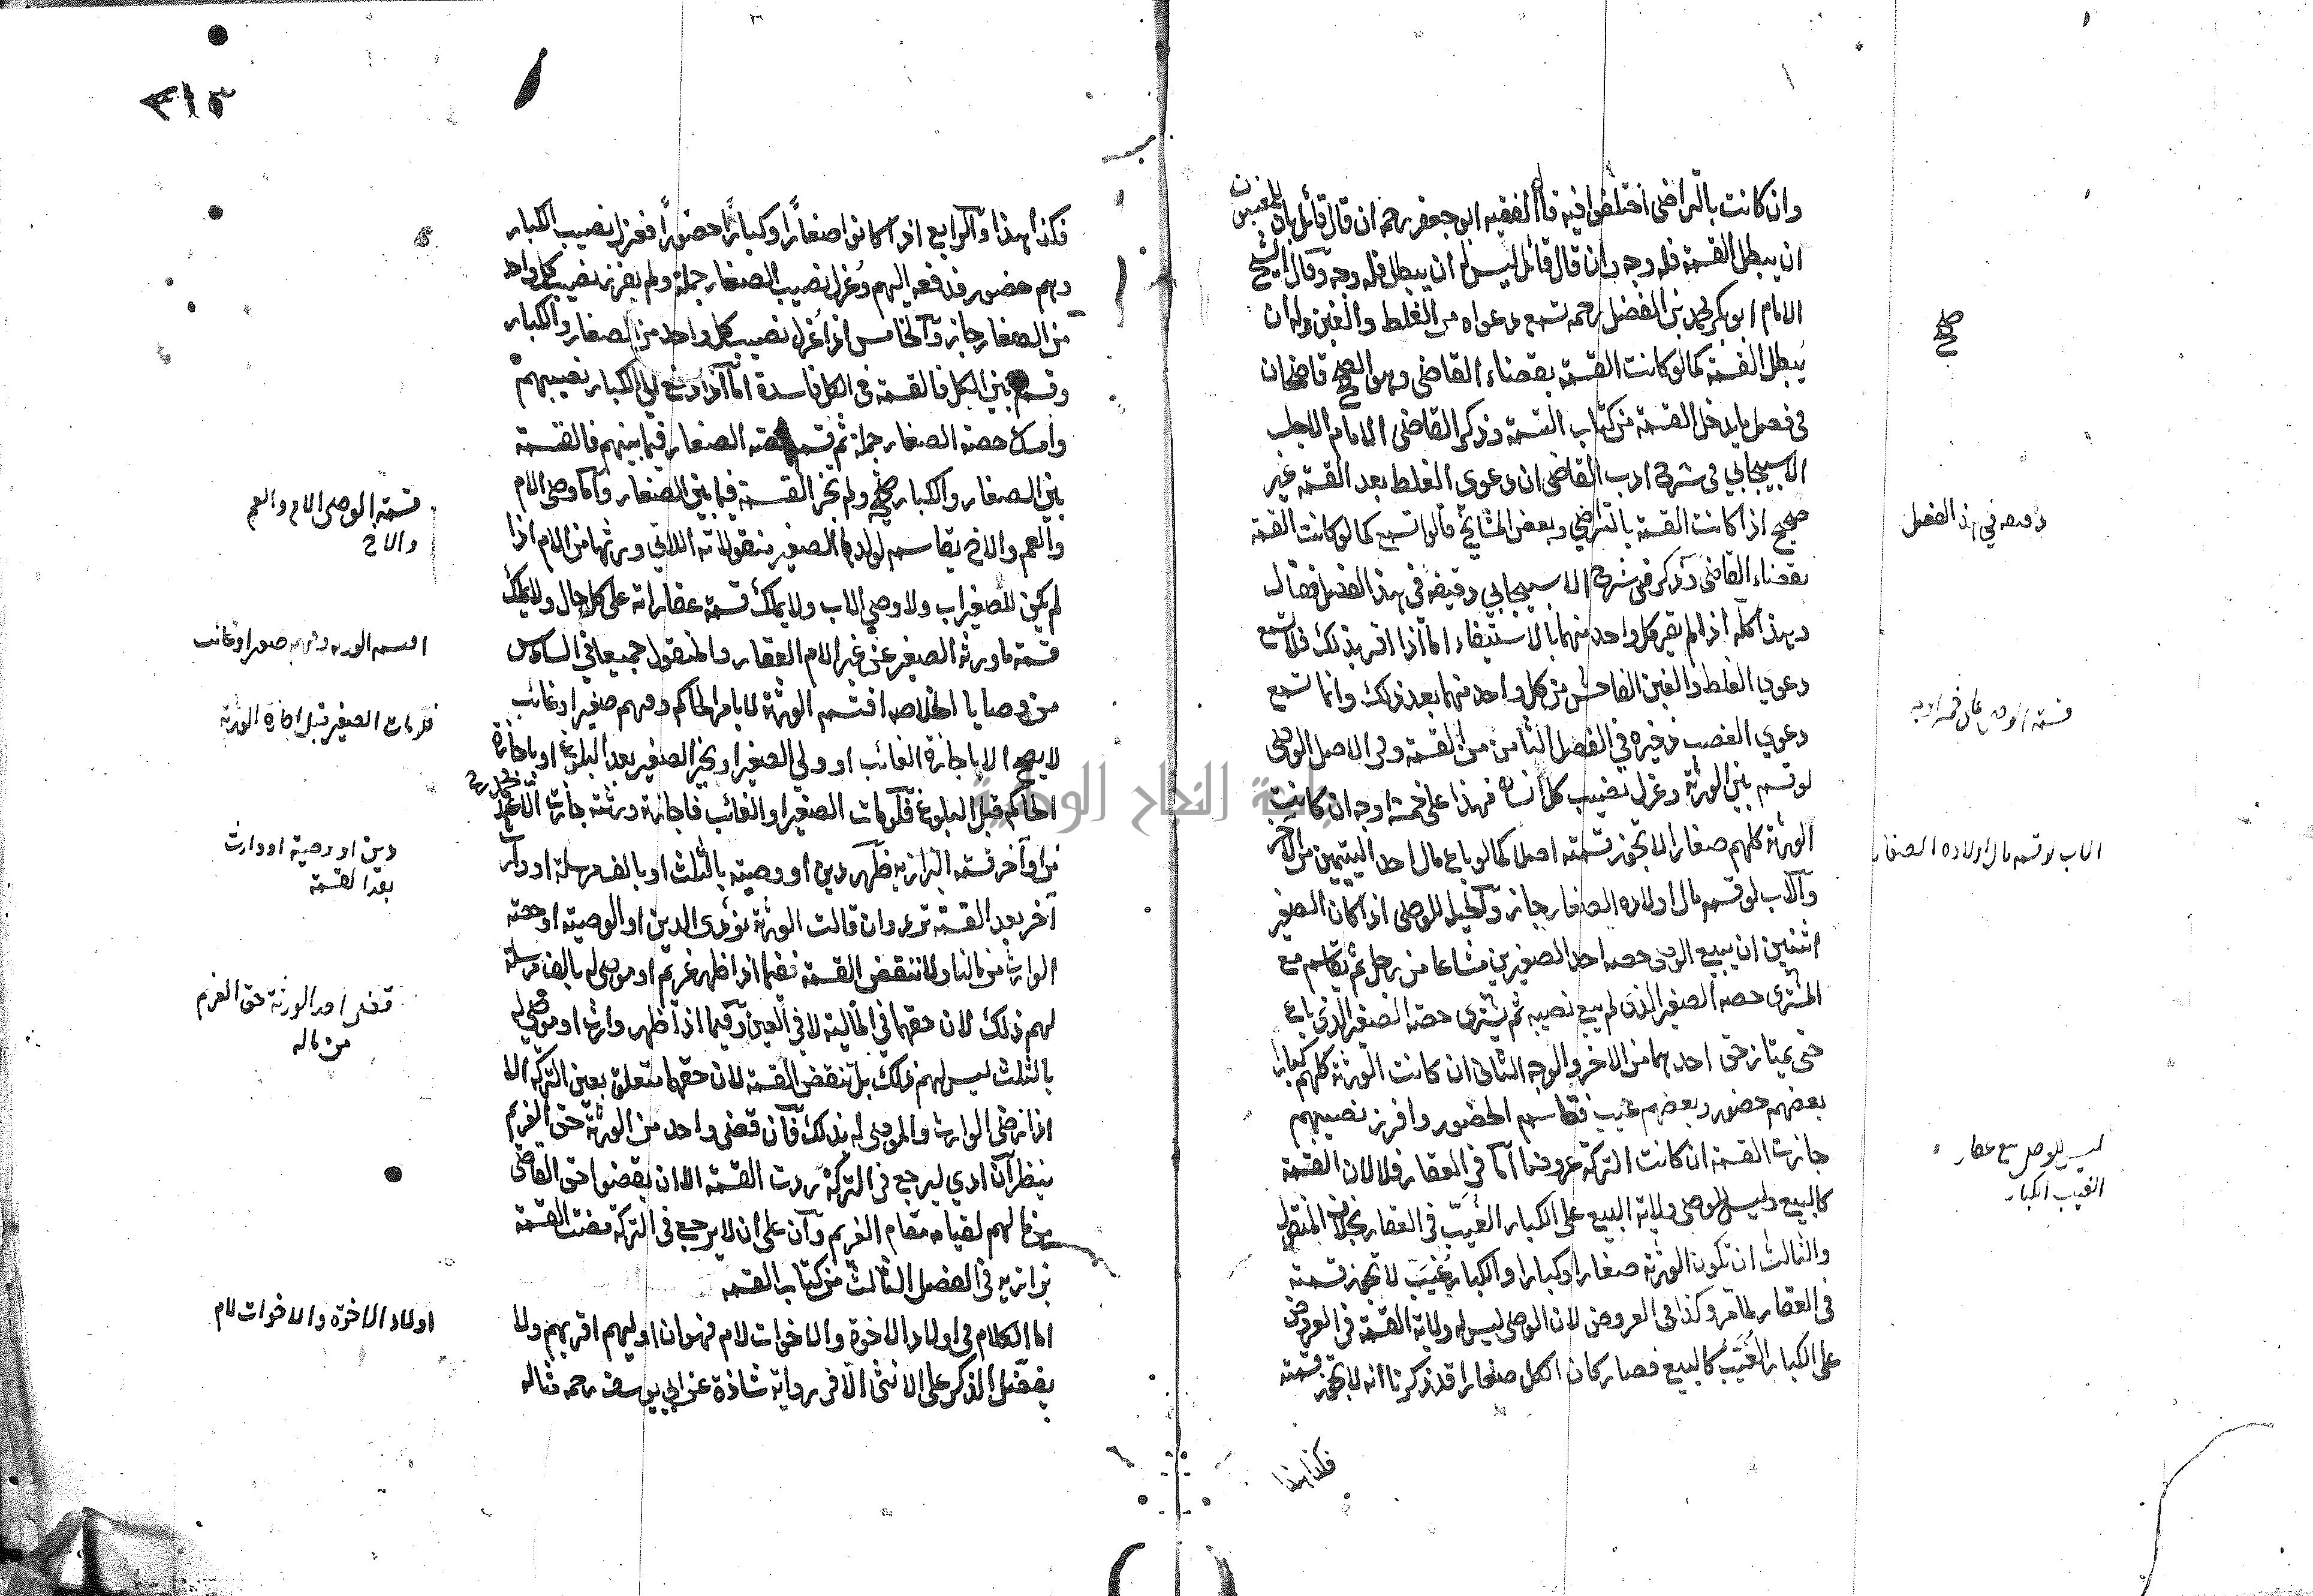 وان كانت بالتراضى اختلفوا فيه قال الفقيه ابو جعفر رحمه ان قال قائل بان للمغبون
ان يبطل القسمة فله وجه وان قال قائل ليس له ان يبطل فله وجه وقال الشيخ
الامام ابو بكر محمد بن الفضل رحمه تسمع دعواه من الغلط والغبن وله ان
يبطل القسمة كما لو كانت القسمة بقضاء القاضى وهو الصحيح قاضيخان
فى فصل ما يدخل القسمة من كتاب القسمة وذكر القاضى الامام الاجل
الاسبيجابي فى شرح ادب القاضى ان دعوى الغلط بعد القسمة غير
صحيح اذا كانت القسمة بالتراضي وبعض المشائخ قالوا تسمع كما لو كانت القسمة
بقضاء القاضى وذكر فى شرح الاسبيجابي دقيقة فى هذا الفصل فقال
وهذا كله اذا لم يقر كل واحد منهما بالاستيفاء اما اذا اقر بذلك فلا تسمع
دعوي الغلط والغبن الفاحش من كل واحد منهما بعد ذلك وانما تسمع
دعوي الغصب ذخيره في الفصل الثامن من القسمة وفى الاصل الوصى
لو قسم بين الورثة وعزل نصيب كل انسان فهذا على خمسة اوجه ان كانت
الورثة كلهم صغارا لا تجوز قسمته اصلا كما لو باع مال احد اليتيمين من الاخر
والاب لو قسم مال اولاده الصغار جاز والحيل للوصى اذا كان الصغير
اثنين ان يبيع الوصى حصه احد الصغيرين مشاعا من رجل ثم يقاسم مع
المشترى حصه الصغير الذى لم يبع نصيبه ثم يشترى حصة الصغير الذى باع
حتى يمتاز حق احدهما من الاخر والوجه الثانى ان كانت الورثة كلهم كبارا
بعضهم حضور وبعضهم غيب فقاسم الحضور وافرز نصيبهم
جازت القسمة ان كانت التركة عروضا اما فى العقار فلا لان القسمة
كالبيع وليس للوصى ولاية البيع على الكبار الغيب فى العقار بخلاف المنقول
والثالث ان تكون الورثة صغارا وكبارا والكبار غيب لا تجوز قسمته
فى العقار لما مر وكذا فى العروض لان الوصى ليس له ولاية القسمة فى العروض
على الكبار الغيب كالبيع فصار كان الكل صغارا قد ذكرنا انه لا تجوز قسمته
فكذا هذا
صح
دقيقه في هذا الفصل
قسمة الوصى على خمسة اوجه
الاب لو قسم مال اولاده الصغار
ليس للوصى بيع عقار
الغيب الكبار
٣١٣
فكذا هذا والرابع اذا كانوا صغارًا وكبارًا حضورًا فعزل نصيب الكبار
وهم حضور فدفعه اليهم وعزل نصيب الصغار جملة ولم يفرز نصيب كل واحد
من الصغار جاز والخامس اذا عزل نصيب كل واحد من الصغار والكبار
وقسم بين الكل فالقسمة فى الكل فاسدة اما اذا دفع الى الكبار نصيبهم
وامسك حصة الصغار جملة ثم قسم حصة الصغار فيما بينهم فالقسمة
بين الصغار والكبار صحيح ولم تجز القسمة فيما بين الصغار واما وصى الام
والعم والاخ يقاسم لولدها الصغير منقولاته اللاتي ورثها من الام اذا
لم يكن للصغير اب ولا وصي الاب ولا يملك قسمة عقاراته على كل حال ولا يملك
قسمة ما ورثه الصغير عن غير الام العقار والمنقول جميعا في السادس
من وصايا الخلاصه اقتسم الورثة لا بامر الحاكم وفيهم صغير او غائب
لا يصح الا باجازة الغائب او ولي الصغير او يجيز الصغير بعد البلوغ او باجازة
الحاكم قبل البلوغ فلو مات الصغير او الغائب فاجازة ورثته جازت الا عند محمد رح
من اواخر قسمة البزازيه ظهر دين او وصية بالثلث او بالف مرسلة او وارث
آخر بعد القسمة ترد وان قالت الورثة نؤدى الدين او الوصية او حصة
الوارث من مالنا ولا ننقض القسمة ففيما اذا ظهر غريم او موصى له بالف مرسلة
لهم ذلك لان حقهما في المالية لا في العين وفيما اذا ظهر وارث او موصى له
بالثلث ليس لهم ذلك بل تنقض القسمة لان حقهما متعلق بعين التركة الا
اذا رضى الوارث والموصى له بذلك فان قضى واحد من الورثة حق الغريم
ينظر ان ادي ليرجع فى التركة ردت القسمة الا ان يقضوا حق القاضى
من مالهم لقيامه مقام الغريم وان على ان لا يرجع فى التركة مضت القسمة
بزازيه فى الفصل الثالث من كتاب القسمه
اما الكلام فى اولاد الاخوة والاخوات لام فهو ان اوليهم اقربهم ولا
يفضل الذكر على الانثى الا فى رواية شاذة عن ابي يوسف رحمه مثاله
قسمة الوصى الام والعم
والاخ
اقتسم الورثه وفيهم صغير او غائب
فلو مات الصغير قبل اجازة الورثة
دين او وصية او وارث
بعد القسمة
قضى احد الورثة حق الغريم
من ماله
اولاد الاخوة والاخوات لام
جامعة النجاح الوطنية